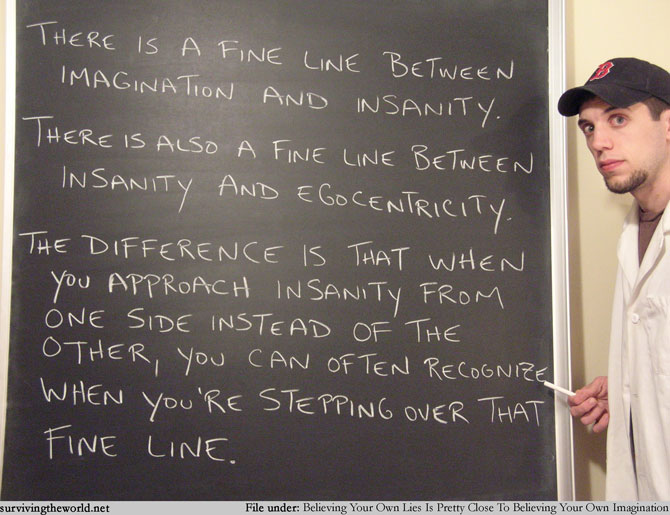 THERE IS A FINE LINE BETWEEN
IMAGINATION AND INSANITY.
THERE IS ALSO A FINE LINE BETWEEN
INSANITY AND EGOCENTRICITY.
THE DIFFERENCE IS THAT WHEN
YOU APPROACH INSANITY FROM
ONE SIDE INSTEAD OF THE
OTHER, YOU CAN OFTEN RECOGNIZE
WHEN YOU'RE STEPPING OVER THAT
FINE LINE.
B
survivingtheworld.net File under: Believing Your Own Lies Is Pretty Close To Believing Your Own Imagination